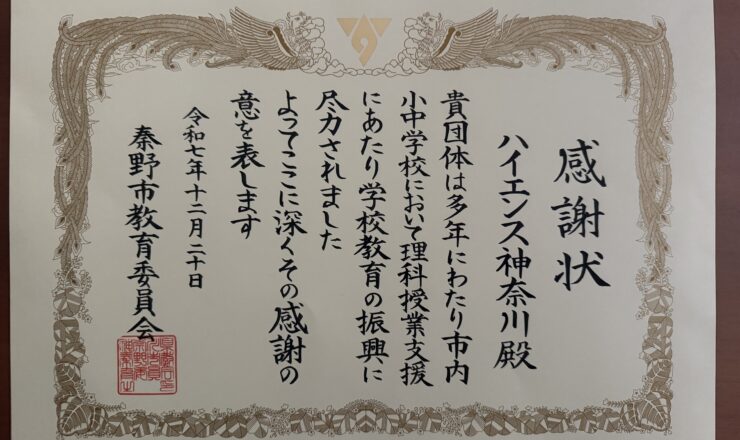 感謝状
ハイエンス神奈川殿
貴団体は多年にわたり市内
小中学校において理科授業支援
にあたり学校教育の振興に
尽力されました
よってここに深くその感謝の
意を表します
令和七年十二月二十日
秦野市教育委員会